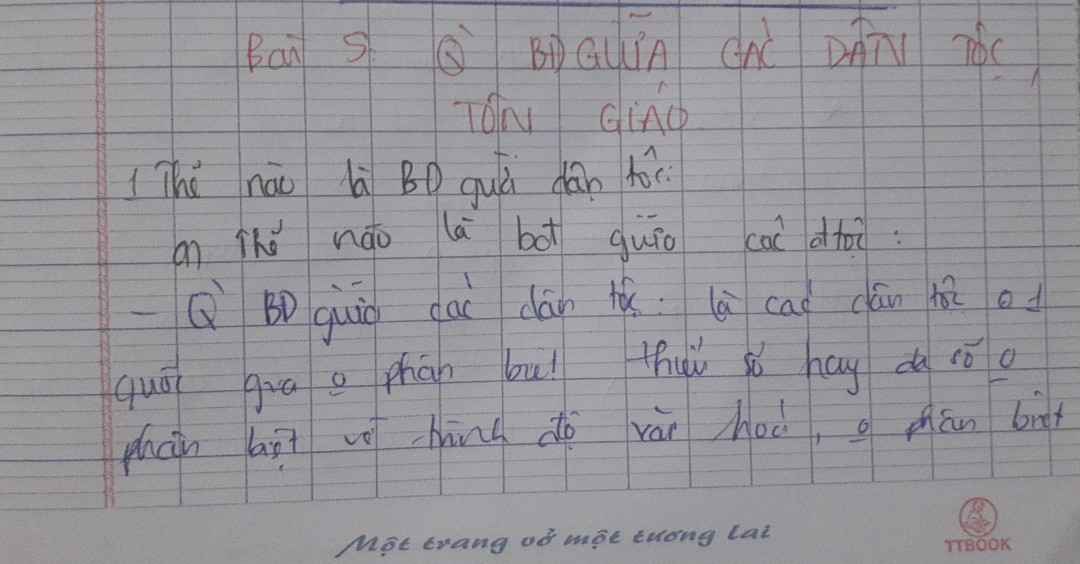 Bài 5 Q BĐ GIỮA CÁC DÂN TỘC,
TÔN GIÁO
1 Thế nào là BĐ giữa dân tộc:
a, Thế nào là bđ giữa các dtộc:
- Q BĐ giữa các dân tộc: là các dân tộc o 1
quốc gia o phân biệt thiểu số hay đa số o
phân biệt về trình độ văn hoá, o phân biệt
Một trang vở một tương lai
TTBOOK